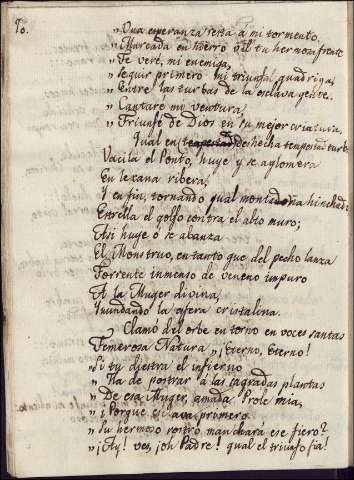 80.
„ Una esperanza resta à mi tormento.
„ Marcada en hierro vil tu hermosa frente
„ Te veré, mi enemiga,
„ Seguir primero mi triunfal quadriga,
„ Entre las turbas de la esclava gente.
„ Cantaré mi ventura,
„ Triunfe de Dios en su mejor criatura.
Qual en deshecha tempestad turb
Vacila el Ponto, huye y se aglomera
En lexana ribera,
Y en fin, tornando qual montaña hinchada
Estrella el golfo contra el alto muro;
Asi huye ó se abanza
El Monstruo, en tanto que del pecho lanza
Torrente inmenso de veneno impuro
A la Muger divina,
Inundando la esfera cristalina.
Clamó del orbe en torno en voces santas
Temerosa Natura „ ¡Eterno, Eterno!
„ Si tu diestra el infierno
„ Ha de postrar à las sagradas plantas
„ De esa Muger, amada Prole mia,
„ ¿Porque si ava primero
„ Su hermoso rostro manchará ese fiero?
„ ¡Ay! ves, ¡oh Padre! qual el triunfo fia!